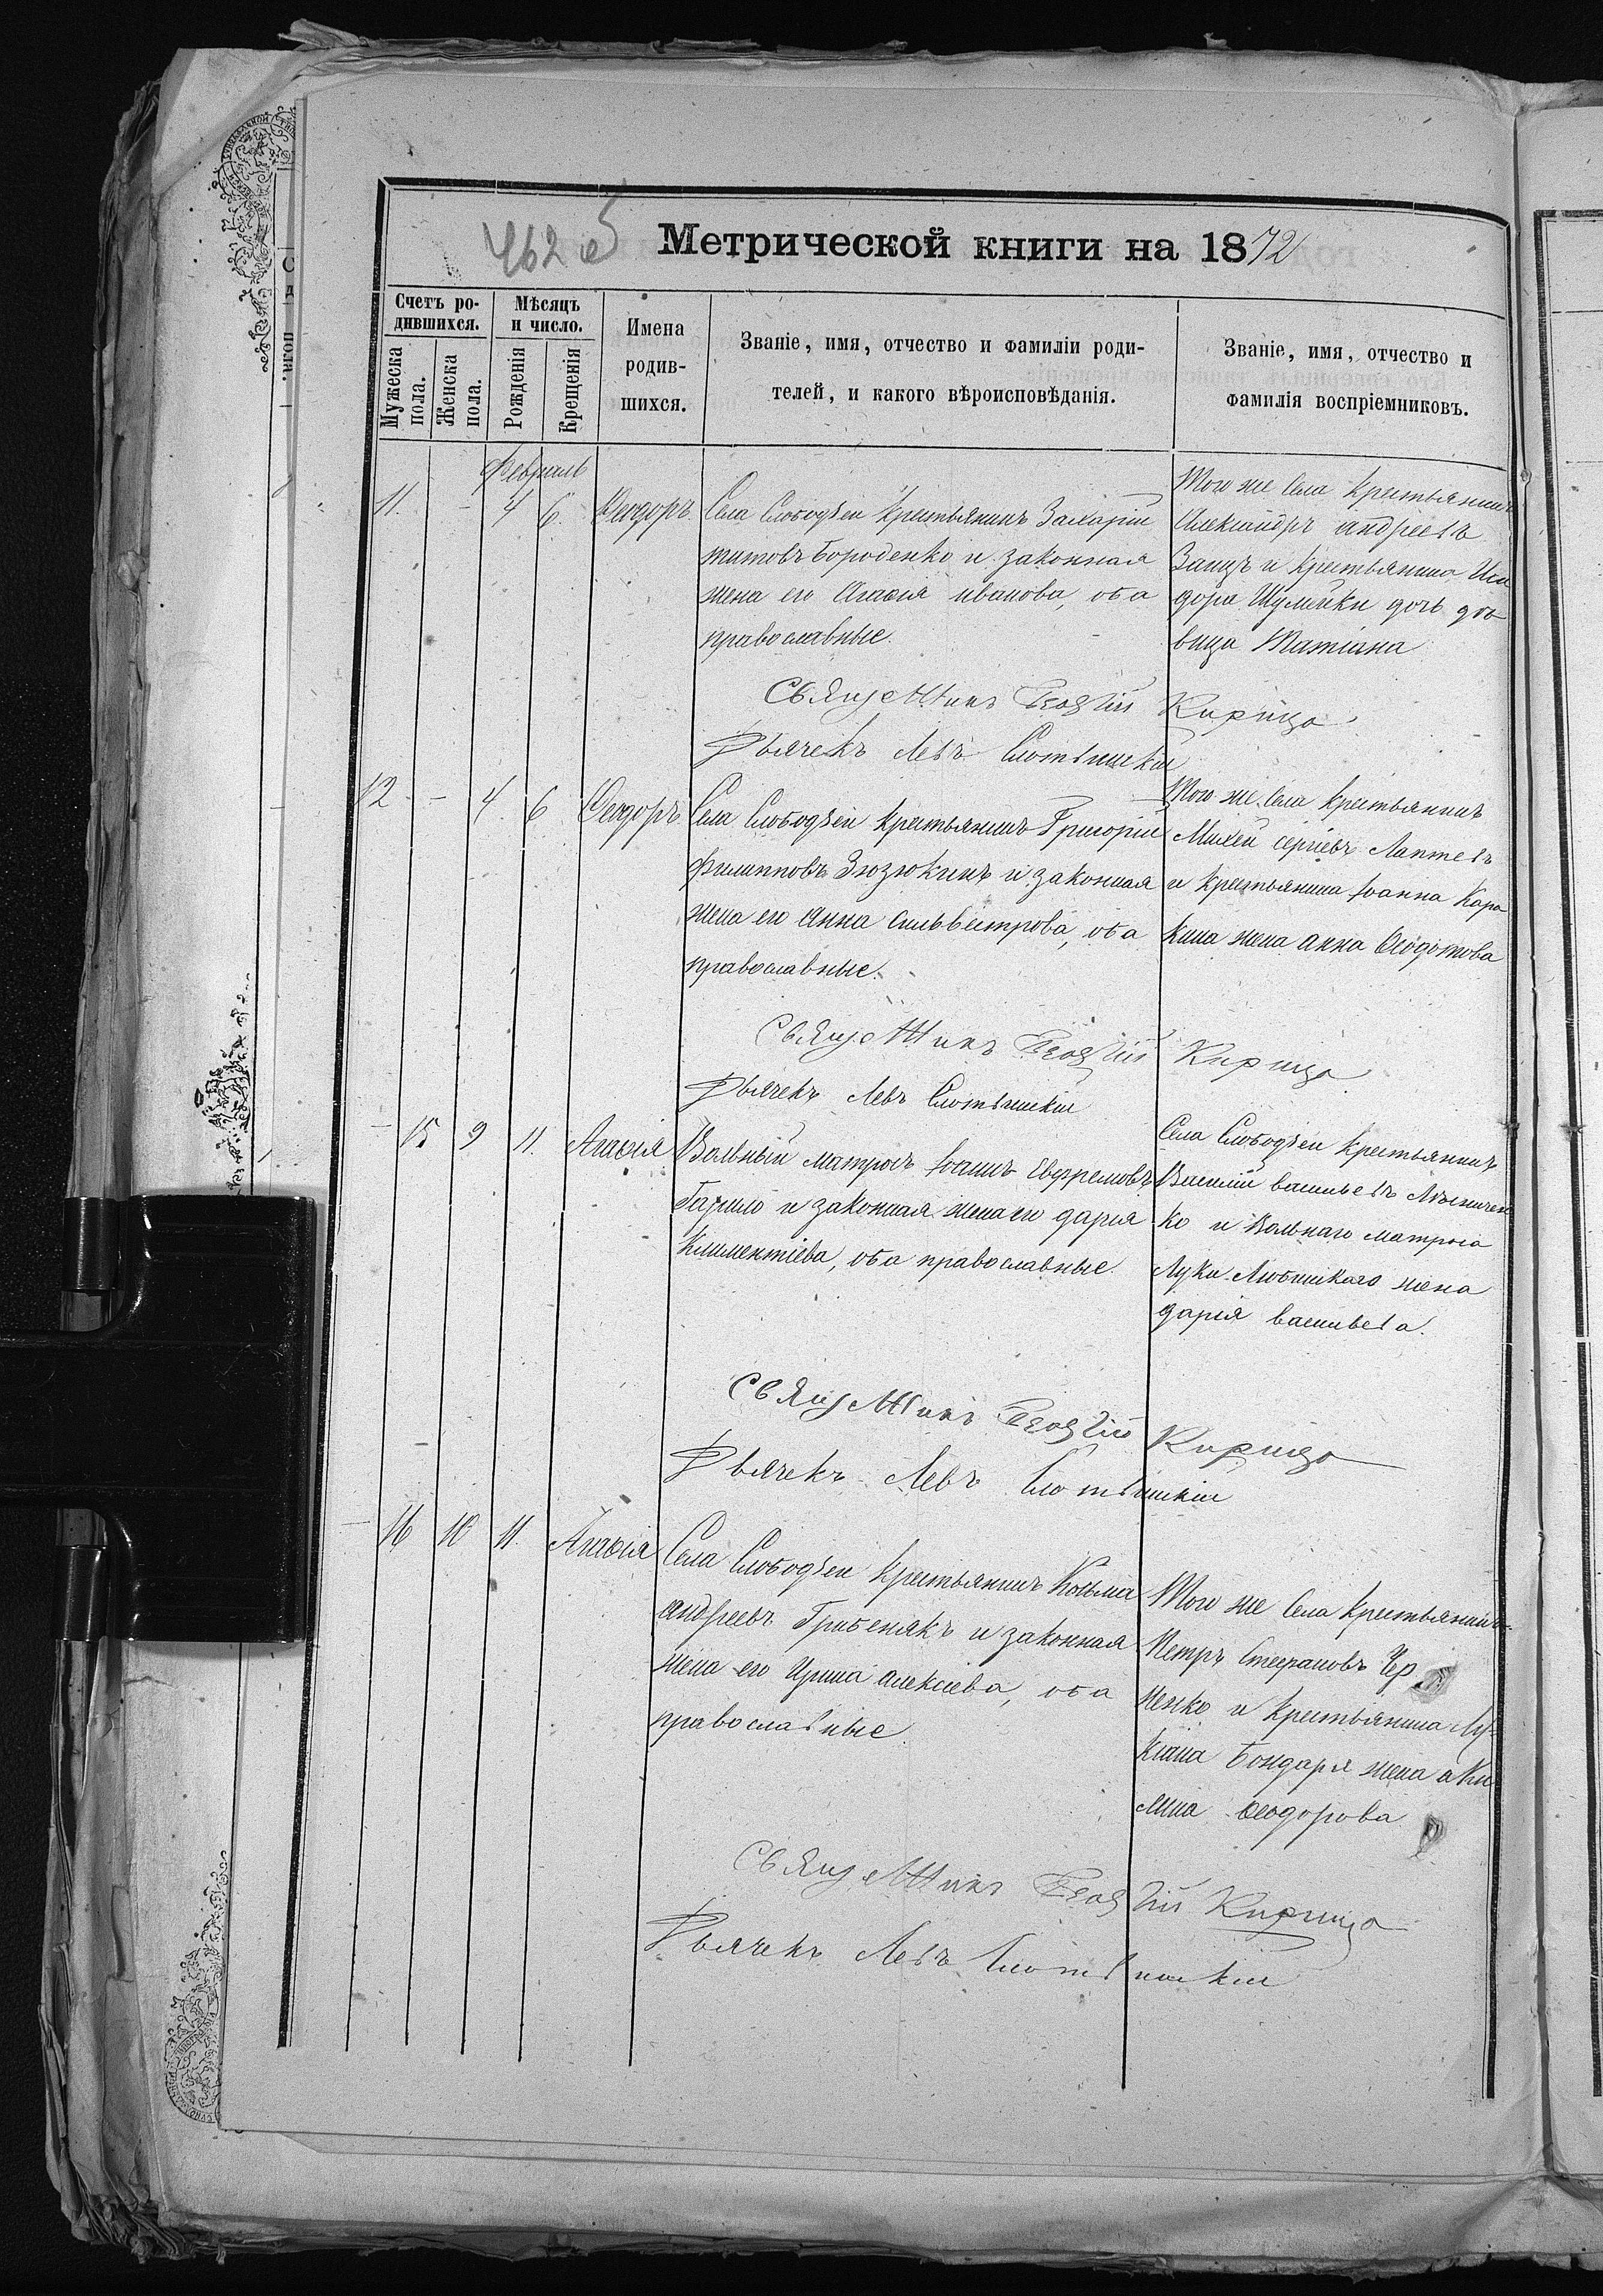 462 об
Метрической книги на 1872
Счетъ родившихся.
Мѣсяцъ и число.
Мужеска пола.
Женска пола.
Рожденія
Крещенія
Имена родившихся.
Званіе, имя, отчество и фамиліи роди-
телей, и какого вѣроисповѣданія.
Званіе, имя, отчество и
фамилія воспріемниковъ.
Февраль
11. - 4 6. Ѳеодоръ
Села Слободзеи крестьянинъ Захарій
титовъ Бороденко и законная
жена его Агаѳія иванова, оба
православные.
Того же Села крестьянинъ
Александръ андреевъ
Заицъ и крестьянина Иси
дора Шумейки дочь дѣ
вица Татіана
Священникъ Георгій Кирица
Дьячекъ Левъ
12 - 4. 6 Ѳеодоръ
Села Слободзеи крестьянинъ Григорій
филипповъ Зюзюкинъ и законная
жена его Анна сильвестрова, оба
православные.
Того же Села крестьянинъ
Михей сергіевъ Лаптевъ
и крестьянина Іоанна Кара
кина жена анна Ѳеодотова
Священникъ Георгій Кирица
Дьячекъ Левъ
- 15 9 11. Агаѳія
Вольный матросъ Іоаннъ Евфремовъ
и законная жена его дарія
Климентіева, оба православные.
Села Слободзеи крестьянинъ
Василій васильевъ
ко и Вольнаго матроса
Луки жена
дарія васильева.
Священникъ Георгій Кирица
Дьячекъ Левъ
- 16 10 11. Агаѳія
Села Слободзеи крестьянинъ Козьма
андреевъ Гребенякъ и законная
жена его Ирина алексіева, оба
православные.
Того же Села крестьянинъ
Петръ Стефановъ Чер
ненко и крестьянина Лу-
кіана Бондаря жена аки
лина ѳеодорова
Священникъ Георгій Кирица
Дьячекъ Левъ